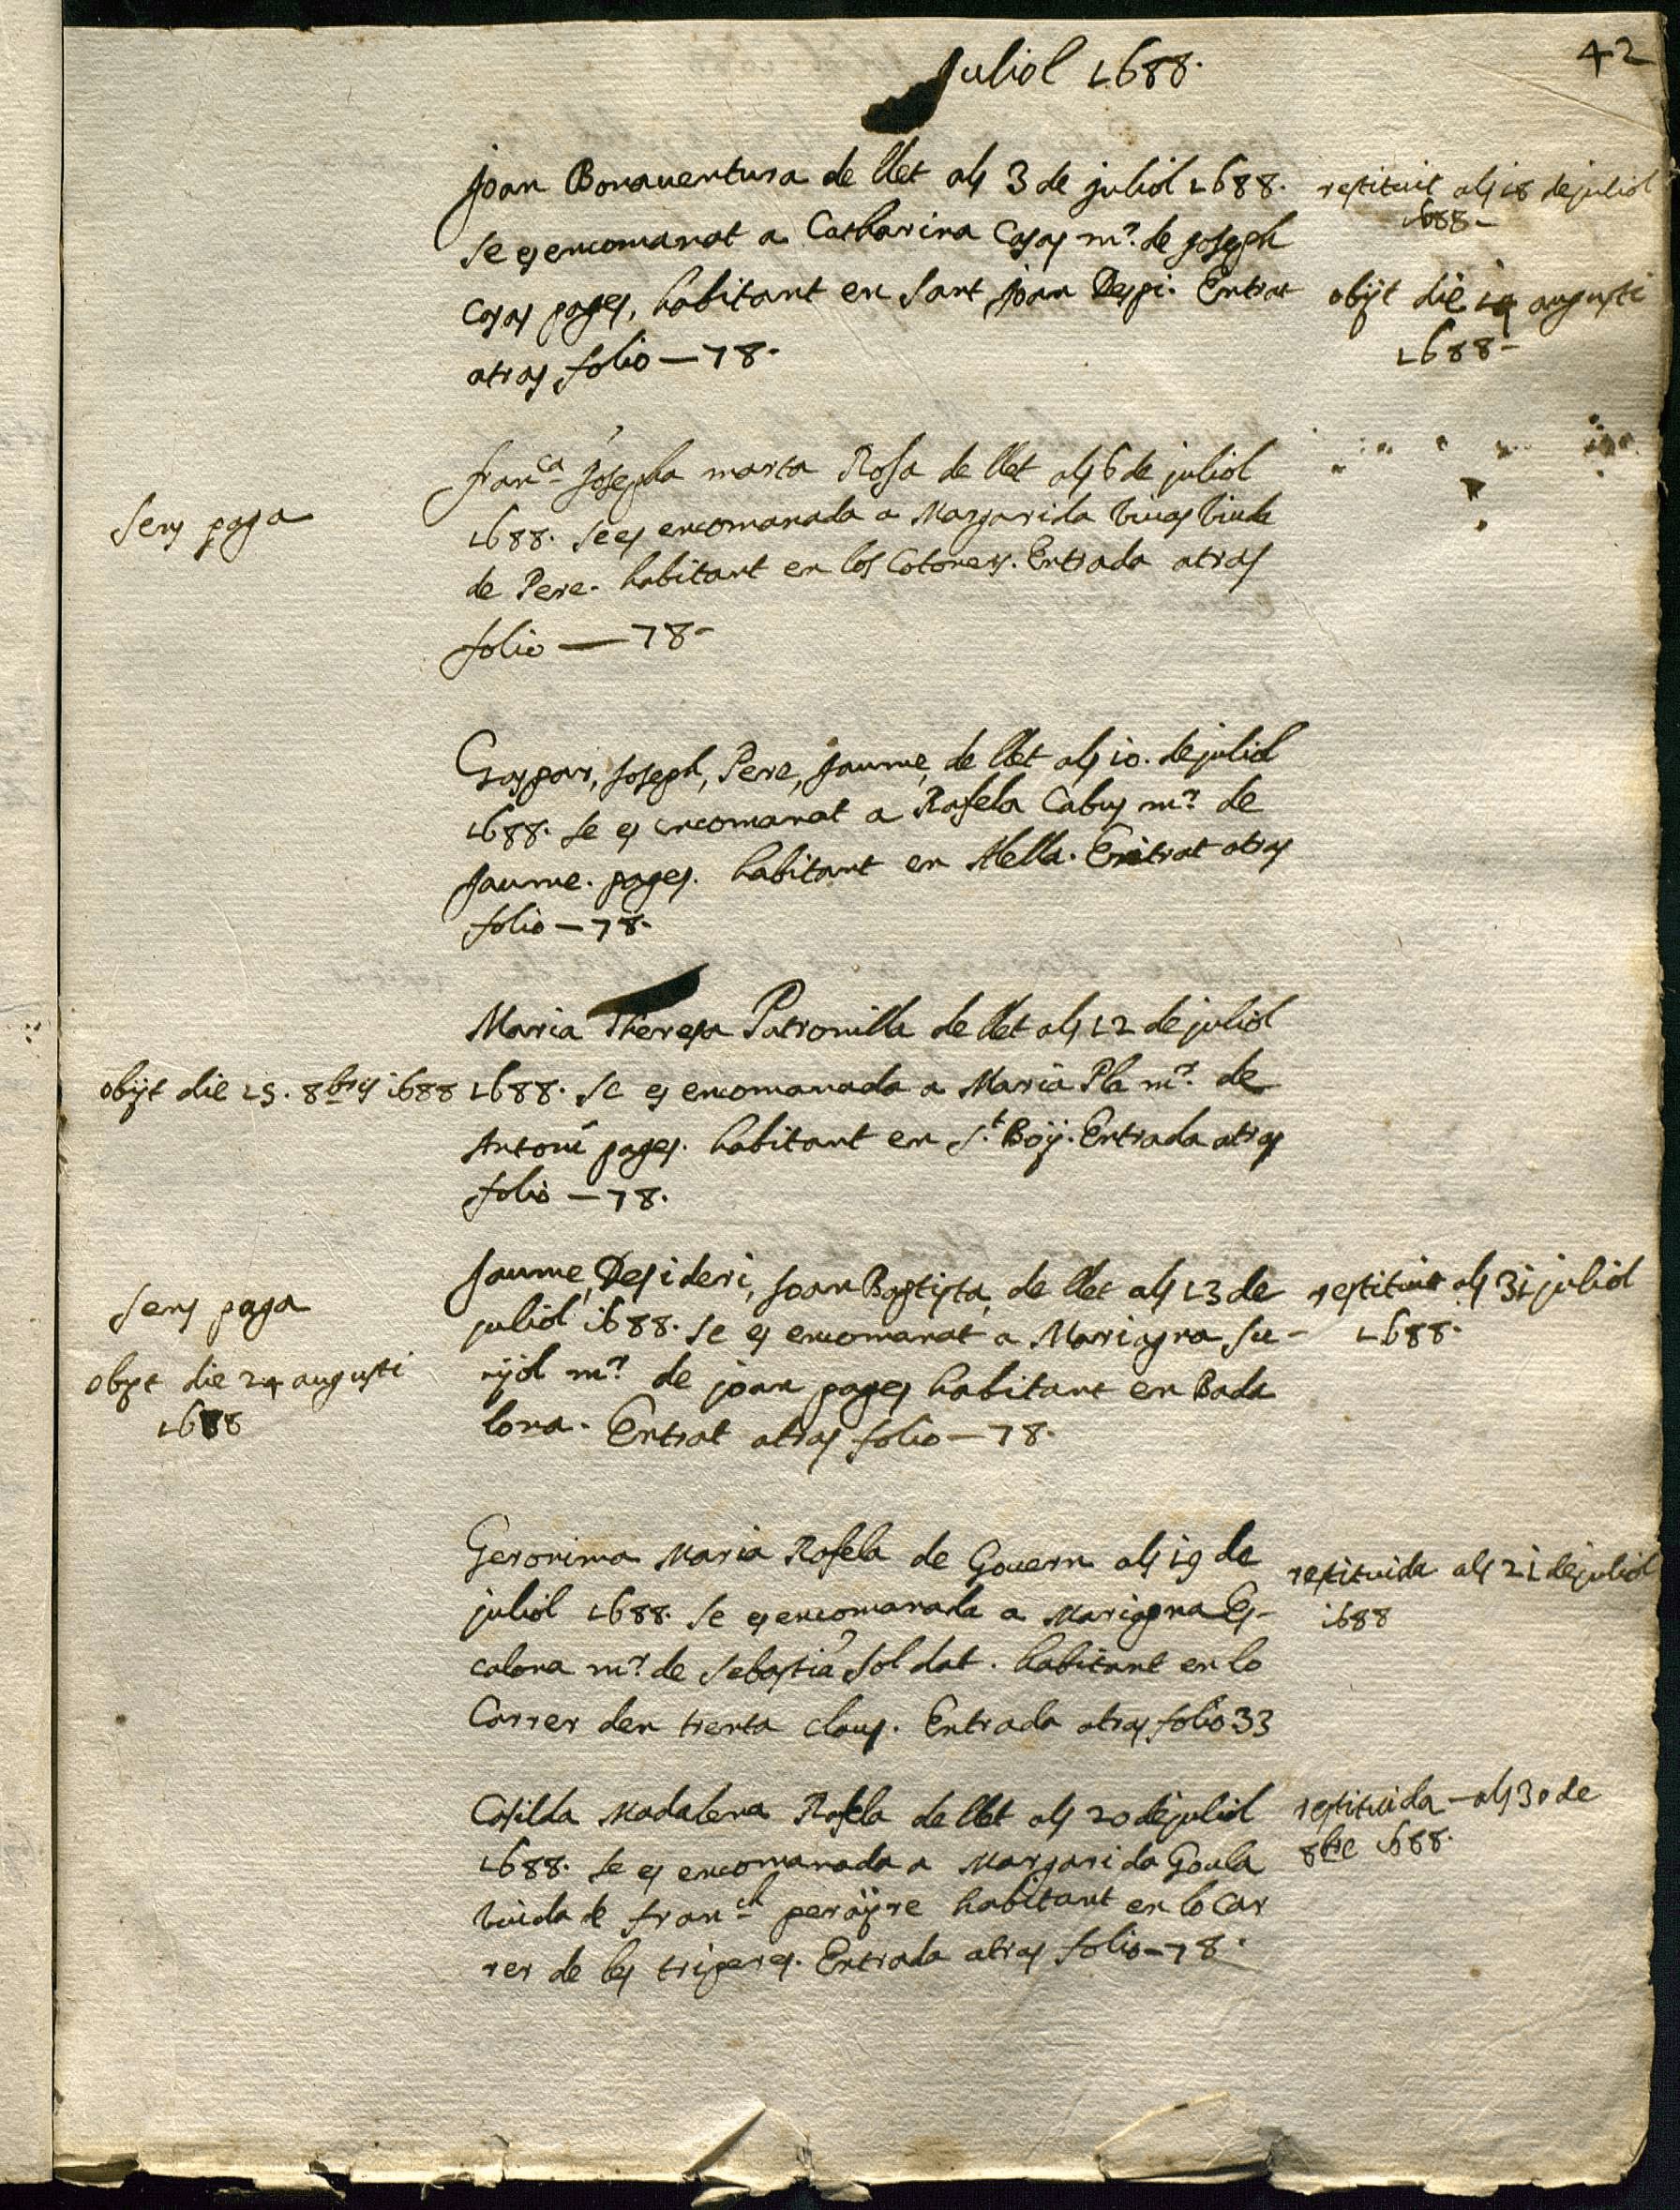 42
Juliol 1688.
Joan Bonaventura de llet als 3 de juliol 1688.
se es encomanat a Catharina Casas mr. de Joseph
Casas pages, habitant en Sant Joan Despi. Entrat
atras folio — 78.
restituit als 18 de juliol
1688 -
obijt die 19 augusti
1688 -
Sens paga
franca Josepha marta Rosa de llet als 6 de juliol
1688. se es encomanada a Margarida Vivas Viuda
de Pere. habitant en los Cotoners. Entrada atras
folio — 78 -
Gaspar, Joseph, Pere, Jaume, de llet als 10. de juliol
1688. se es encomanat a Rafela Cabus mr. de
Jaume. pages. habitant en Alella. Entrat atras
folio — 78.
Maria Theresa Patronilla de llet als 12 de juliol
obijt die 15. 8bris 1688
1688. se es encomanada a Maria Pla mr. de
Antoni pages. habitant en St. Boÿ. Entrada atras
folio — 78.
Sens paga
obijt die 24 augusti
1688
Jaume, Desideri, Joan Baptista, de llet als 13 de
juliol 1688. se es encomanat a Mariagna Su-
ñol mr. de joan pages habitant en Bada
lona. Entrat atras folio — 78.
restituit als 31 juliol
1688.
Geronima Maria Rafela de Govern als 19 de
juliol 1688. se es encomanada a Mariagna Es-
calona mr. de Sebastia Soldat. habitant en lo
Carrer den trenta claus. Entrada atras folio 33
restituida als 21 de juliol
1688
Casilda Madalena Rafela de llet als 20 de juliol
1688. se es encomanada a Margarida Goula
Viuda de franch peraÿre habitant en lo Car
rer de les triperes. Entrada atras folio — 78.
restituida — als 30 de
8bre 1688.